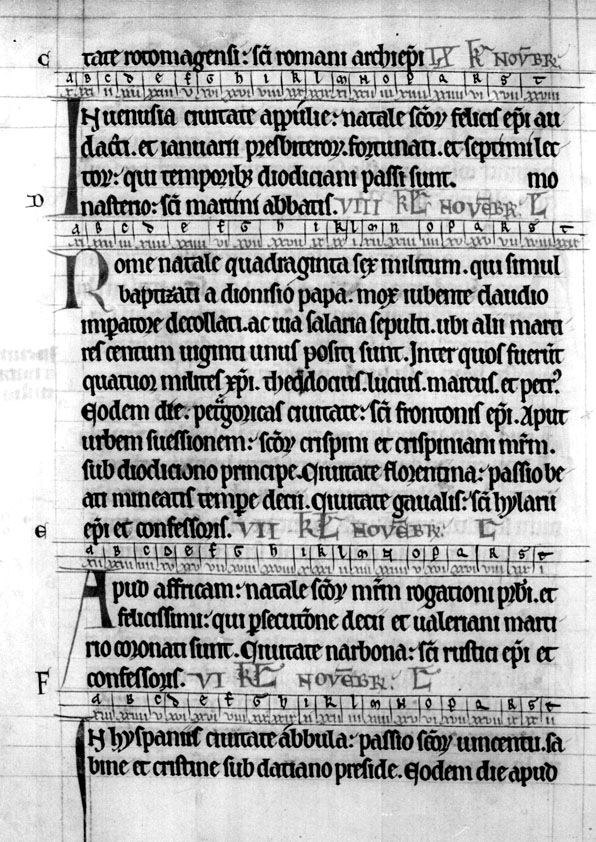 C tate rotomagensi: scī romani archiep̄i IX kł NOVĒBR.
a B C D e f G h i k l m N o p q R s t
IN uenusia ciuitate appulie: natale scōꝝ felicis ep̄i au
dacti. et ianuarii presbiteroꝝ. fortunati. et septimi lec
toꝝ: qui temporibꝫ diodiciani passi sunt. mo
D nasterio: scī martini abbatis. VIII kł NOVĒBR. L
a B C D e f G h i k l m n o p q R s t
Rome natale quadraginta sex militum. qui simul
baptizati a dionisio papa. mox iubente claudio
imꝑatore decollati. ac uia salaria sepulti. ubi alii marti
res centum uiginti unus positi sunt. Inter quos fuerūt
quatuor milites xp̄i. theodocius. lucius. marcus. et petrꝰ
Eodem die. petͣgoricas ciuitate: scī frontonis ep̄i. Aput
urbem suessionem: scōꝝ crispini et crispiniani mr̄m.
sub diodiciono principe. Ciuitate florentina: passio be
ati mineatis tempe decii. Ciuitate gaualis: scī hylarii
E ep̄i et confessoris. VII kł NOVĒBR. L
a B C D e f G h i k l m N o p q R s t
Apud affricam: natale scōꝝ mr̄m rogationi prb̄i. et
felicissimi: qui ꝑsecutōne decii et ualeriani marti
rio coronati sunt. Ciuitate narbona: scī rustici ep̄i et
F confessoris. VI kł NOVĒBR. L
a B C D e f G h i k l m N o p q R s t
IN hyspaniis ciuitate abbula: passio scōꝝ uincentii. sa
bine et cristine sub datiano preside. Eodem die apud